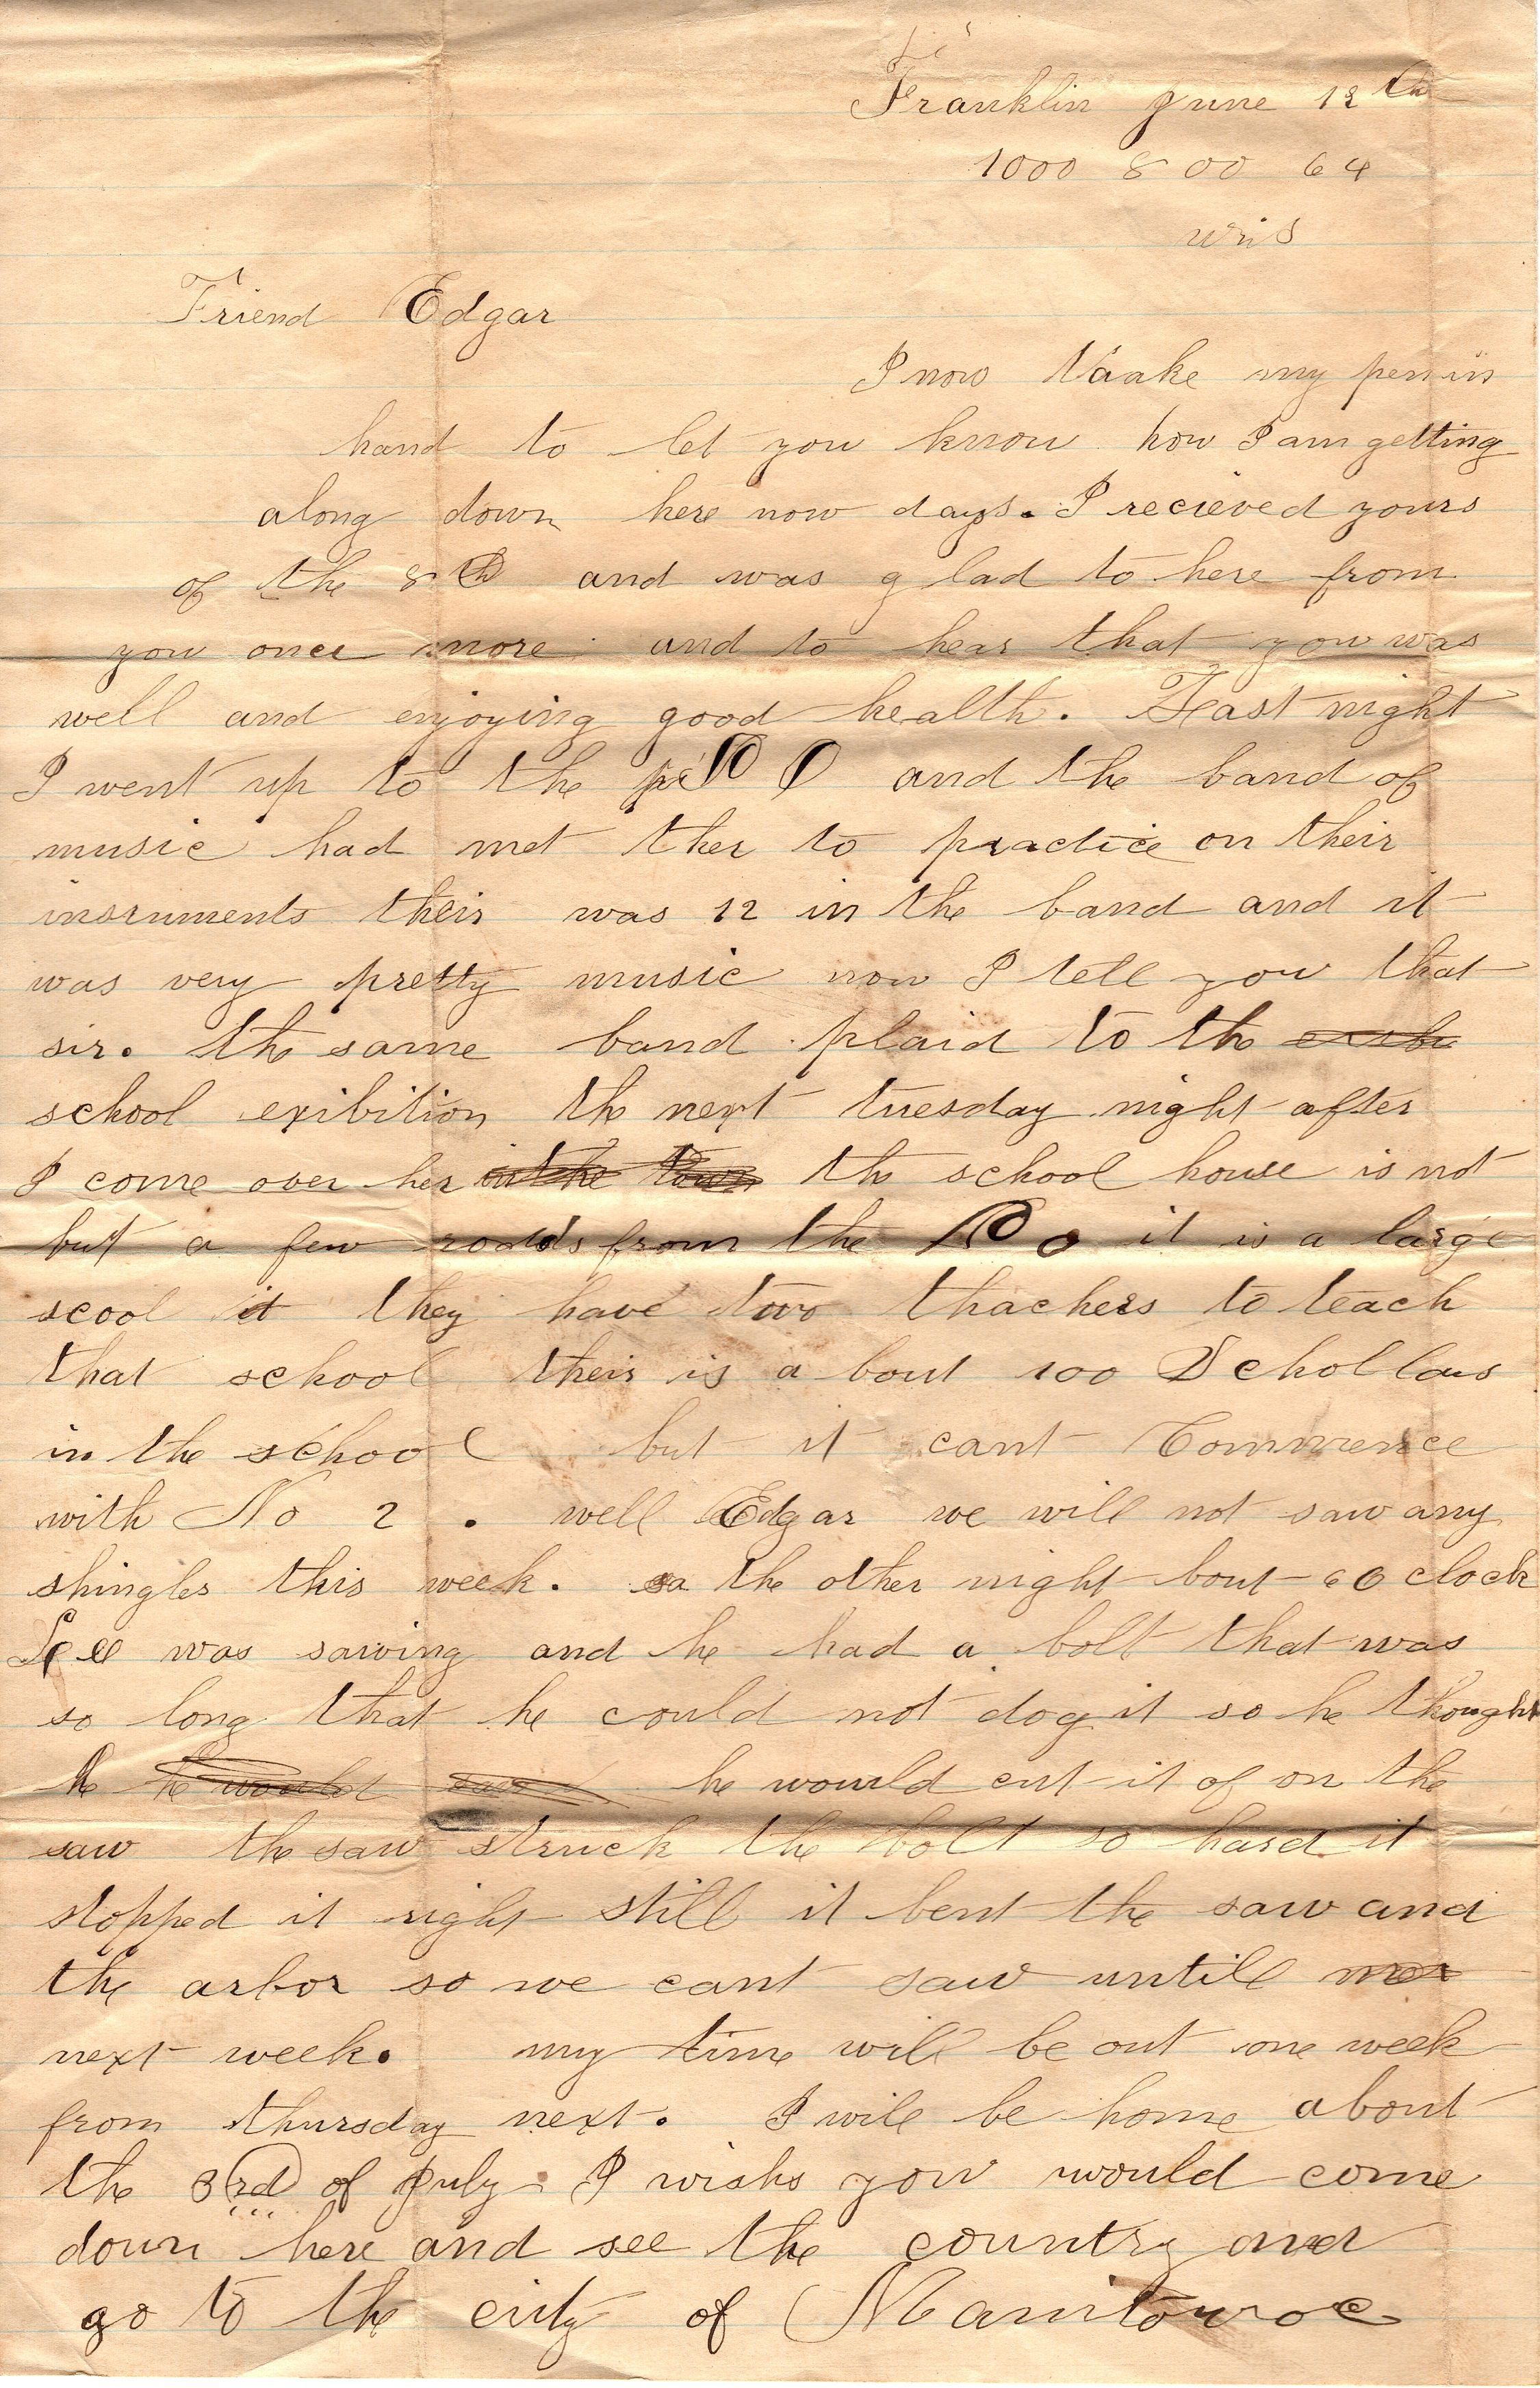 Franklin June 12th
1000 8 00 64
wis
Friend Edgar
I now taake my pen in
hand to let you know how I am getting
along down here now days. I recieved yours
of the 8th and was g lad to here from
you once more and to hear that you was
well and enjoying good health. Last night
I went up to the P O and the band of
music had met ther to practice on their
insruments their was 12 in the band and it
was very pretty music now I tell you that
sir. the same band plaid to the
school exibition the next tuesday night after
I come over her in the town the school house is not
but a few rodds from the P O it is a large
scool it they have two thachers to teach
that school their is a bout 100 Schollars
in the school but it cant Commence
with No 2 . well Edgar we will not saw any
shingles this week. the other night bout 6 O clock
was sawing and he had a bolt that was
so long that he could not dog it so he thought
he he would saw he would cut it of on the
saw the saw struck the bolt so hard it
stopped it right still it bent the saw and
the arbor so we cant saw untill
next week. my time will be out one week
from thursday next. I will be home about
the 3rd of July. I wish you would come
down here and see the country and
go to the city of Manitowoc